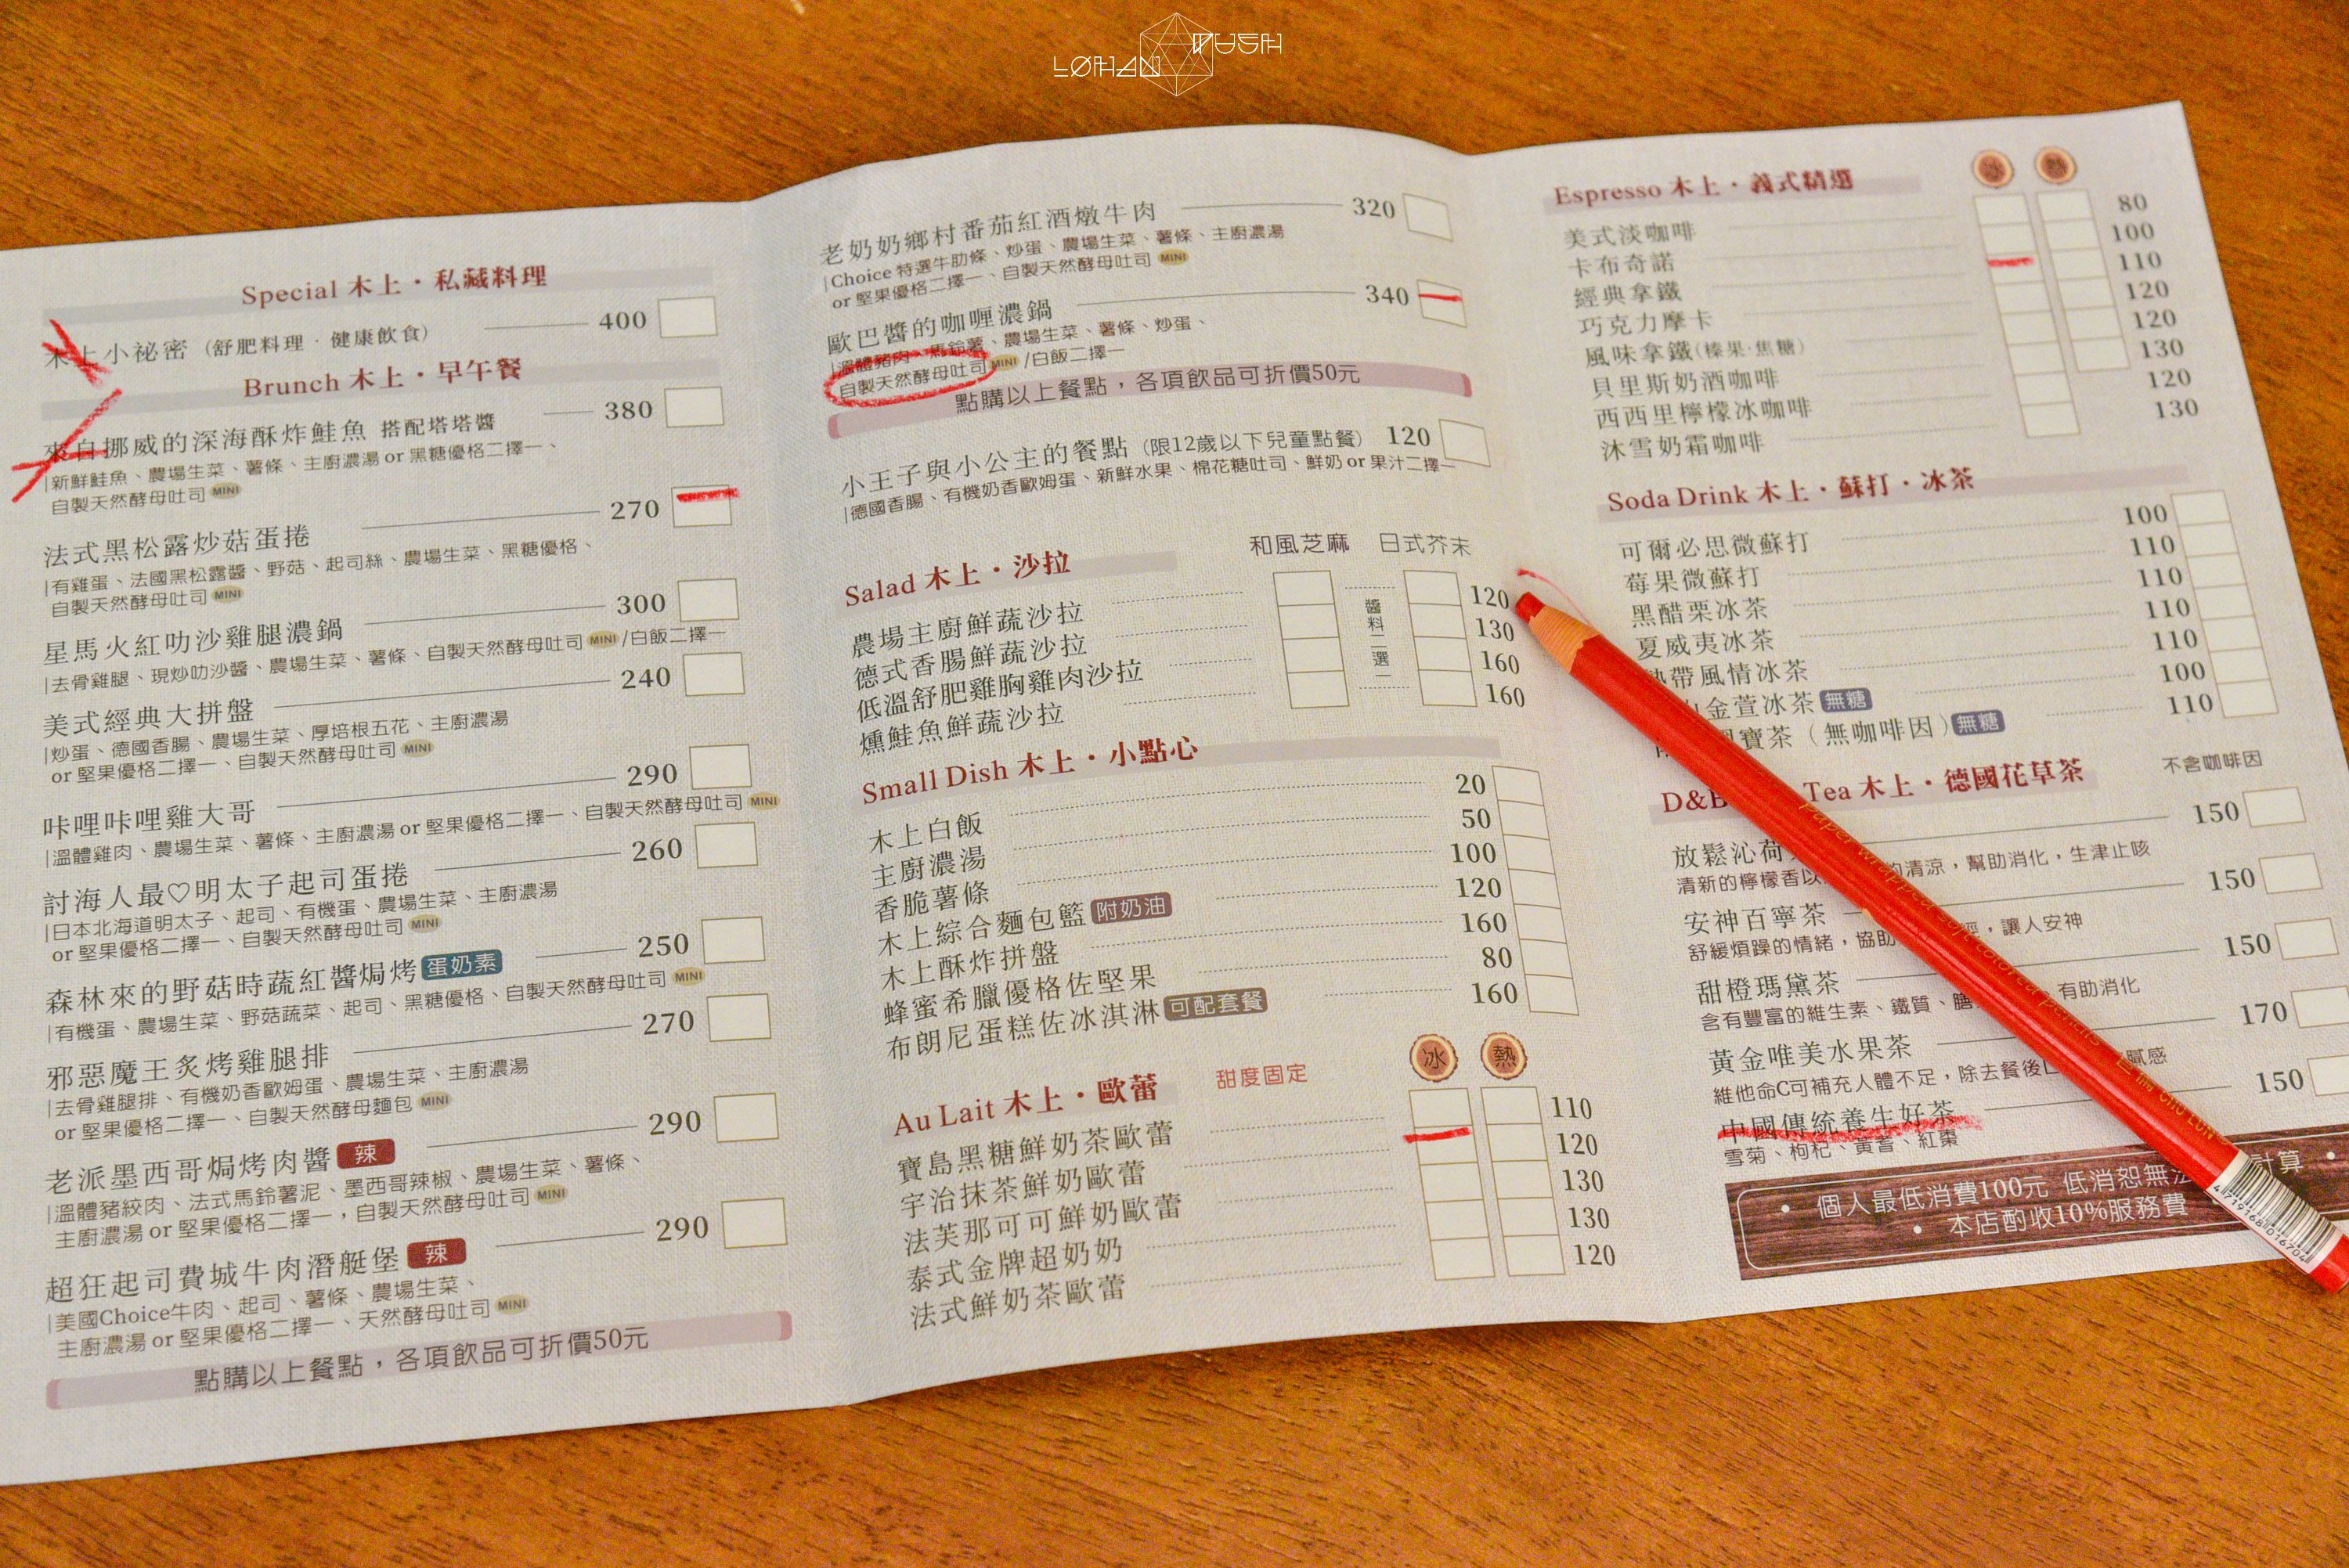 LOHAN MUSH
Special 木上・私藏料理
木上小祕密（舒肥料理・健康飲食） 400
Brunch 木上・早午餐
來自挪威的深海酥炸鮭魚 搭配塔塔醬 380
新鮮鮭魚、農場生菜、薯條、主廚濃湯 or 黑糖優格二擇一、
自製天然酵母吐司 MINI
法式黑松露炒菇蛋捲 270
有雞蛋、法國黑松露醬、野菇、起司絲、農場生菜、黑糖優格、
自製天然酵母吐司 MINI
星馬火紅叻沙雞腿濃鍋 300
去骨雞腿、現炒叻沙醬、農場生菜、薯條、自製天然酵母吐司 MINI /白飯二擇一
美式經典大拼盤 240
炒蛋、德國香腸、農場生菜、厚培根五花、主廚濃湯
or 堅果優格二擇一、自製天然酵母吐司 MINI
咔哩咔哩雞大哥 290
溫體雞肉、農場生菜、薯條、主廚濃湯 or 堅果優格二擇一、自製天然酵母吐司 MINI
討海人最♡明太子起司蛋捲 260
日本北海道明太子、起司、有機蛋、農場生菜、主廚濃湯
or 堅果優格二擇一、自製天然酵母吐司 MINI
森林來的野菇時蔬紅醬焗烤 蛋奶素 250
有機蛋、農場生菜、野菇蔬菜、起司、黑糖優格、自製天然酵母吐司 MINI
邪惡魔王炙烤雞腿排 270
去骨雞腿排、有機奶香歐姆蛋、農場生菜、主廚濃湯
or 堅果優格二擇一、自製天然酵母麵包 MINI
老派墨西哥焗烤肉醬 辣 290
溫體豬絞肉、法式馬鈴薯泥、墨西哥辣椒、農場生菜、薯條、
主廚濃湯 or 堅果優格二擇一，自製天然酵母吐司 MINI
超狂起司費城牛肉潛艇堡 辣 290
美國Choice牛肉、起司、薯條、農場生菜、
主廚濃湯 or 堅果優格二擇一、天然酵母吐司 MINI
點購以上餐點，各項飲品可折價50元
老奶奶鄉村番茄紅酒燉牛肉 320
Choice 特選牛肋條、炒蛋、農場生菜、薯條、主廚濃湯
or 堅果優格二擇一、自製天然酵母吐司 MINI
歐巴醬的咖喱濃鍋 340
溫體豬肉、馬鈴薯、農場生菜、薯條、炒蛋、
自製天然酵母吐司 MINI /白飯二擇一
點購以上餐點，各項飲品可折價50元
小王子與小公主的餐點（限12歲以下兒童點餐） 120
德國香腸、有機奶香歐姆蛋、新鮮水果、棉花糖吐司、鮮奶 or 果汁二擇一
Salad 木上・沙拉 和風芝麻 日式芥末
醬料二選一
農場主廚鮮蔬沙拉 120
德式香腸鮮蔬沙拉 130
低溫舒肥雞胸雞肉沙拉 160
燻鮭魚鮮蔬沙拉 160
Small Dish 木上・小點心
木上白飯 20
主廚濃湯 50
香脆薯條 100
木上綜合麵包籃 附奶油 120
木上酥炸拼盤 160
蜂蜜希臘優格佐堅果 80
布朗尼蛋糕佐冰淇淋 可配套餐 160
Au Lait 木上・歐蕾 甜度固定 冰 熱
寶島黑糖鮮奶茶歐蕾 110
宇治抹茶鮮奶歐蕾 120
法芙那可可鮮奶歐蕾 130
泰式金牌超奶奶 130
法式鮮奶茶歐蕾 120
Espresso 木上・義式精選 冰 熱
美式淡咖啡 80
卡布奇諾 100
經典拿鐵 110
巧克力摩卡 120
風味拿鐵(榛果・焦糖) 120
貝里斯奶酒咖啡 130
西西里檸檬冰咖啡 120
沐雪奶霜咖啡 130
Soda Drink 木上・蘇打・冰茶
可爾必思微蘇打 100
莓果微蘇打 110
黑醋栗冰茶 110
夏威夷冰茶 110
熱帶風情冰茶 110
金萱冰茶 無糖 100
寶茶（無咖啡因） 無糖 110
D&B Tea 木上・德國花草茶 不含咖啡因
放鬆沁荷 150
清新的檸檬香以 的清涼，幫助消化，生津止咳
安神百寧茶 150
舒緩煩躁的情緒，協助 經，讓人安神
甜橙瑪黛茶 150
含有豐富的維生素、鐵質、膳 有助消化
黃金唯美水果茶 170
維他命C可補充人體不足，除去餐後 膩感
中國傳統養生好茶 150
雪菊、枸杞、黃耆、紅棗
• 個人最低消費100元 低消恕無法 計算 •
• 本店酌收10%服務費
Paper wrapped soft colored pencils CHU LUN
4719168016704